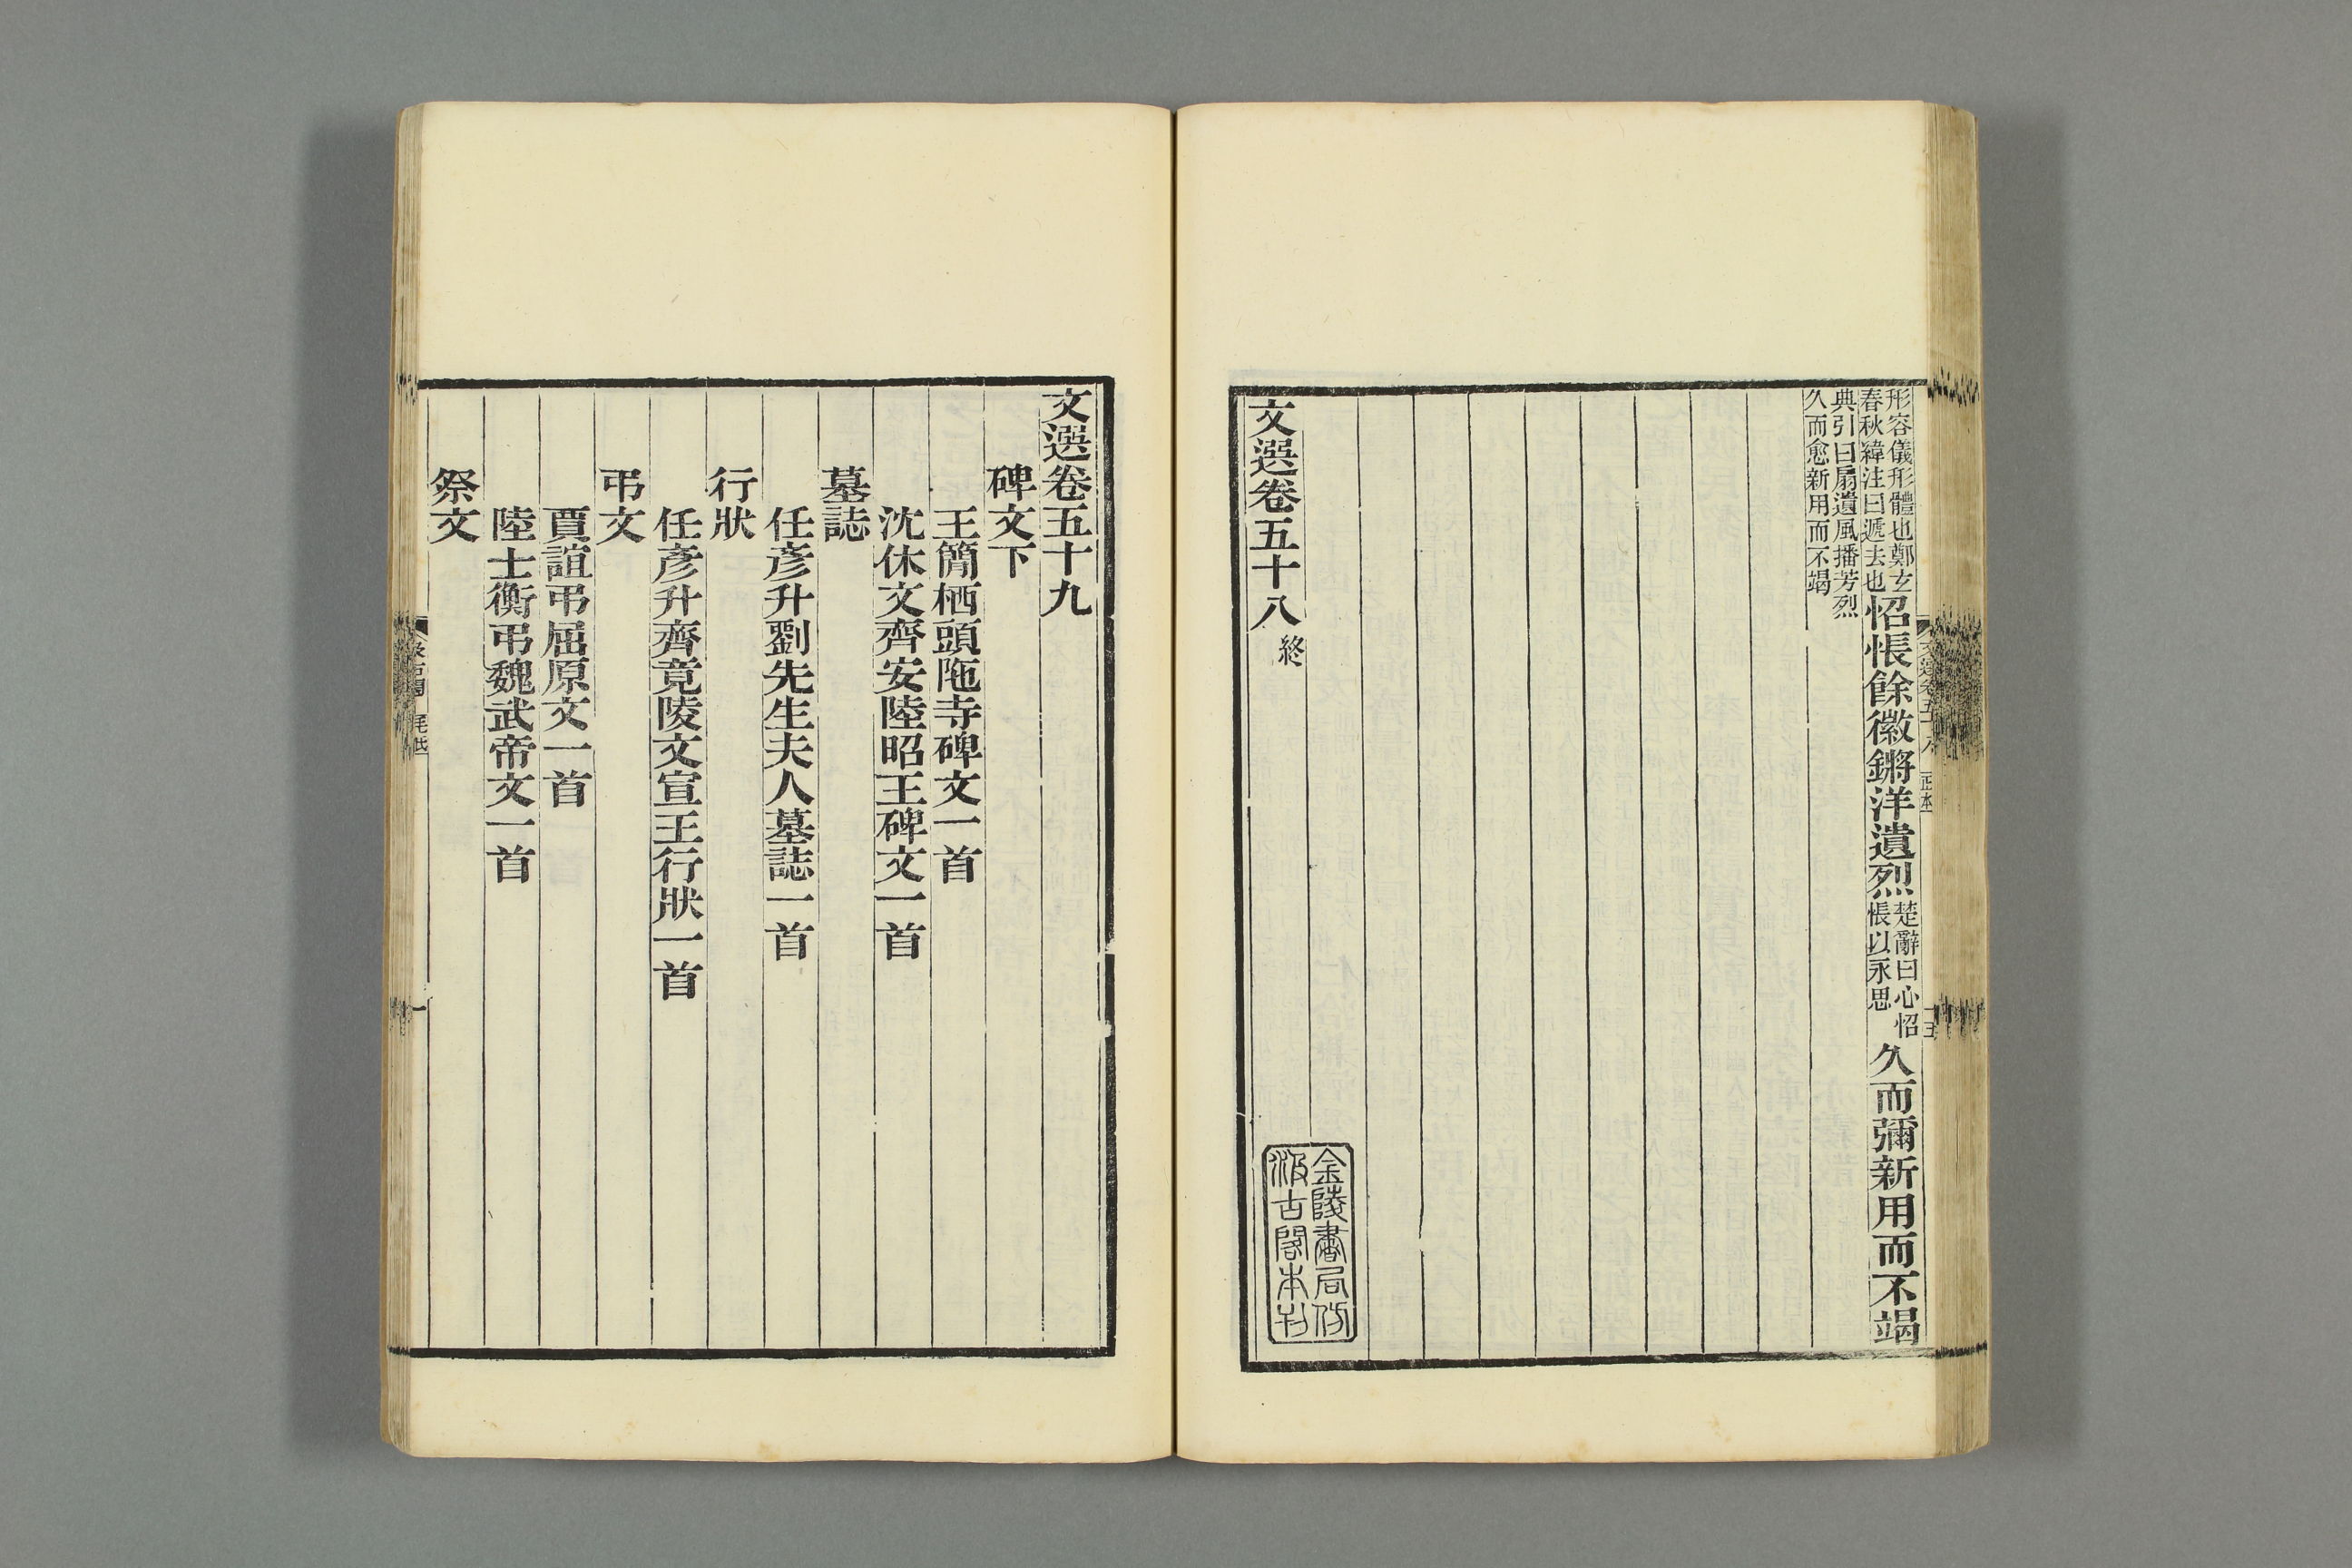 形容儀形體也鄭玄
春秋緯注曰遞去也
怊悵餘徽鏘洋遺烈
楚辭曰心怊
悵以永思
久而彌新用而不竭
典引曰扇遺風播芳烈
久而愈新用而不竭
文選卷五十八
終
金陵書局仿
汲古閣本刊
文選卷五十八
一五
文選卷五十九
碑文下
王簡栖頭陁寺碑文一首
沈休文齊安陸昭王碑文一首
墓誌
任彥升劉先生夫人墓誌一首
行狀
任彥升齊竟陵文宣王行狀一首
弔文
賈誼弔屈原文一首
陸士衡弔魏武帝文一首
祭文